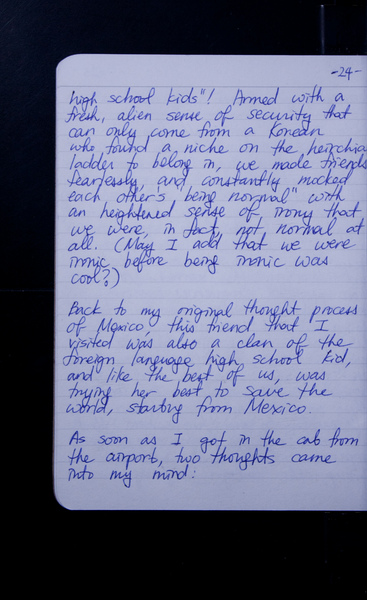 -24-
high school kids"! Armed with a
fresh, alien sense of security that
can only come from a Korean
who found a niche on the heirchia
ladder to belong in, we made friends
fearlessly, and constantly mocked
each other's being normal" with
an heightened sense of irony that
we were, in fact, not normal at
all. (May I add that we were
ironic before being ironic was
cool?)
Back to my original thought process
of Mexico, this friend that I
visited was also a clan of the
foreign language high school kid,
and like the best of us, was
trying her best to save the
world, starting from Mexico.
As soon as I got in the cab from
the airport, two thoughts came
into my mind: